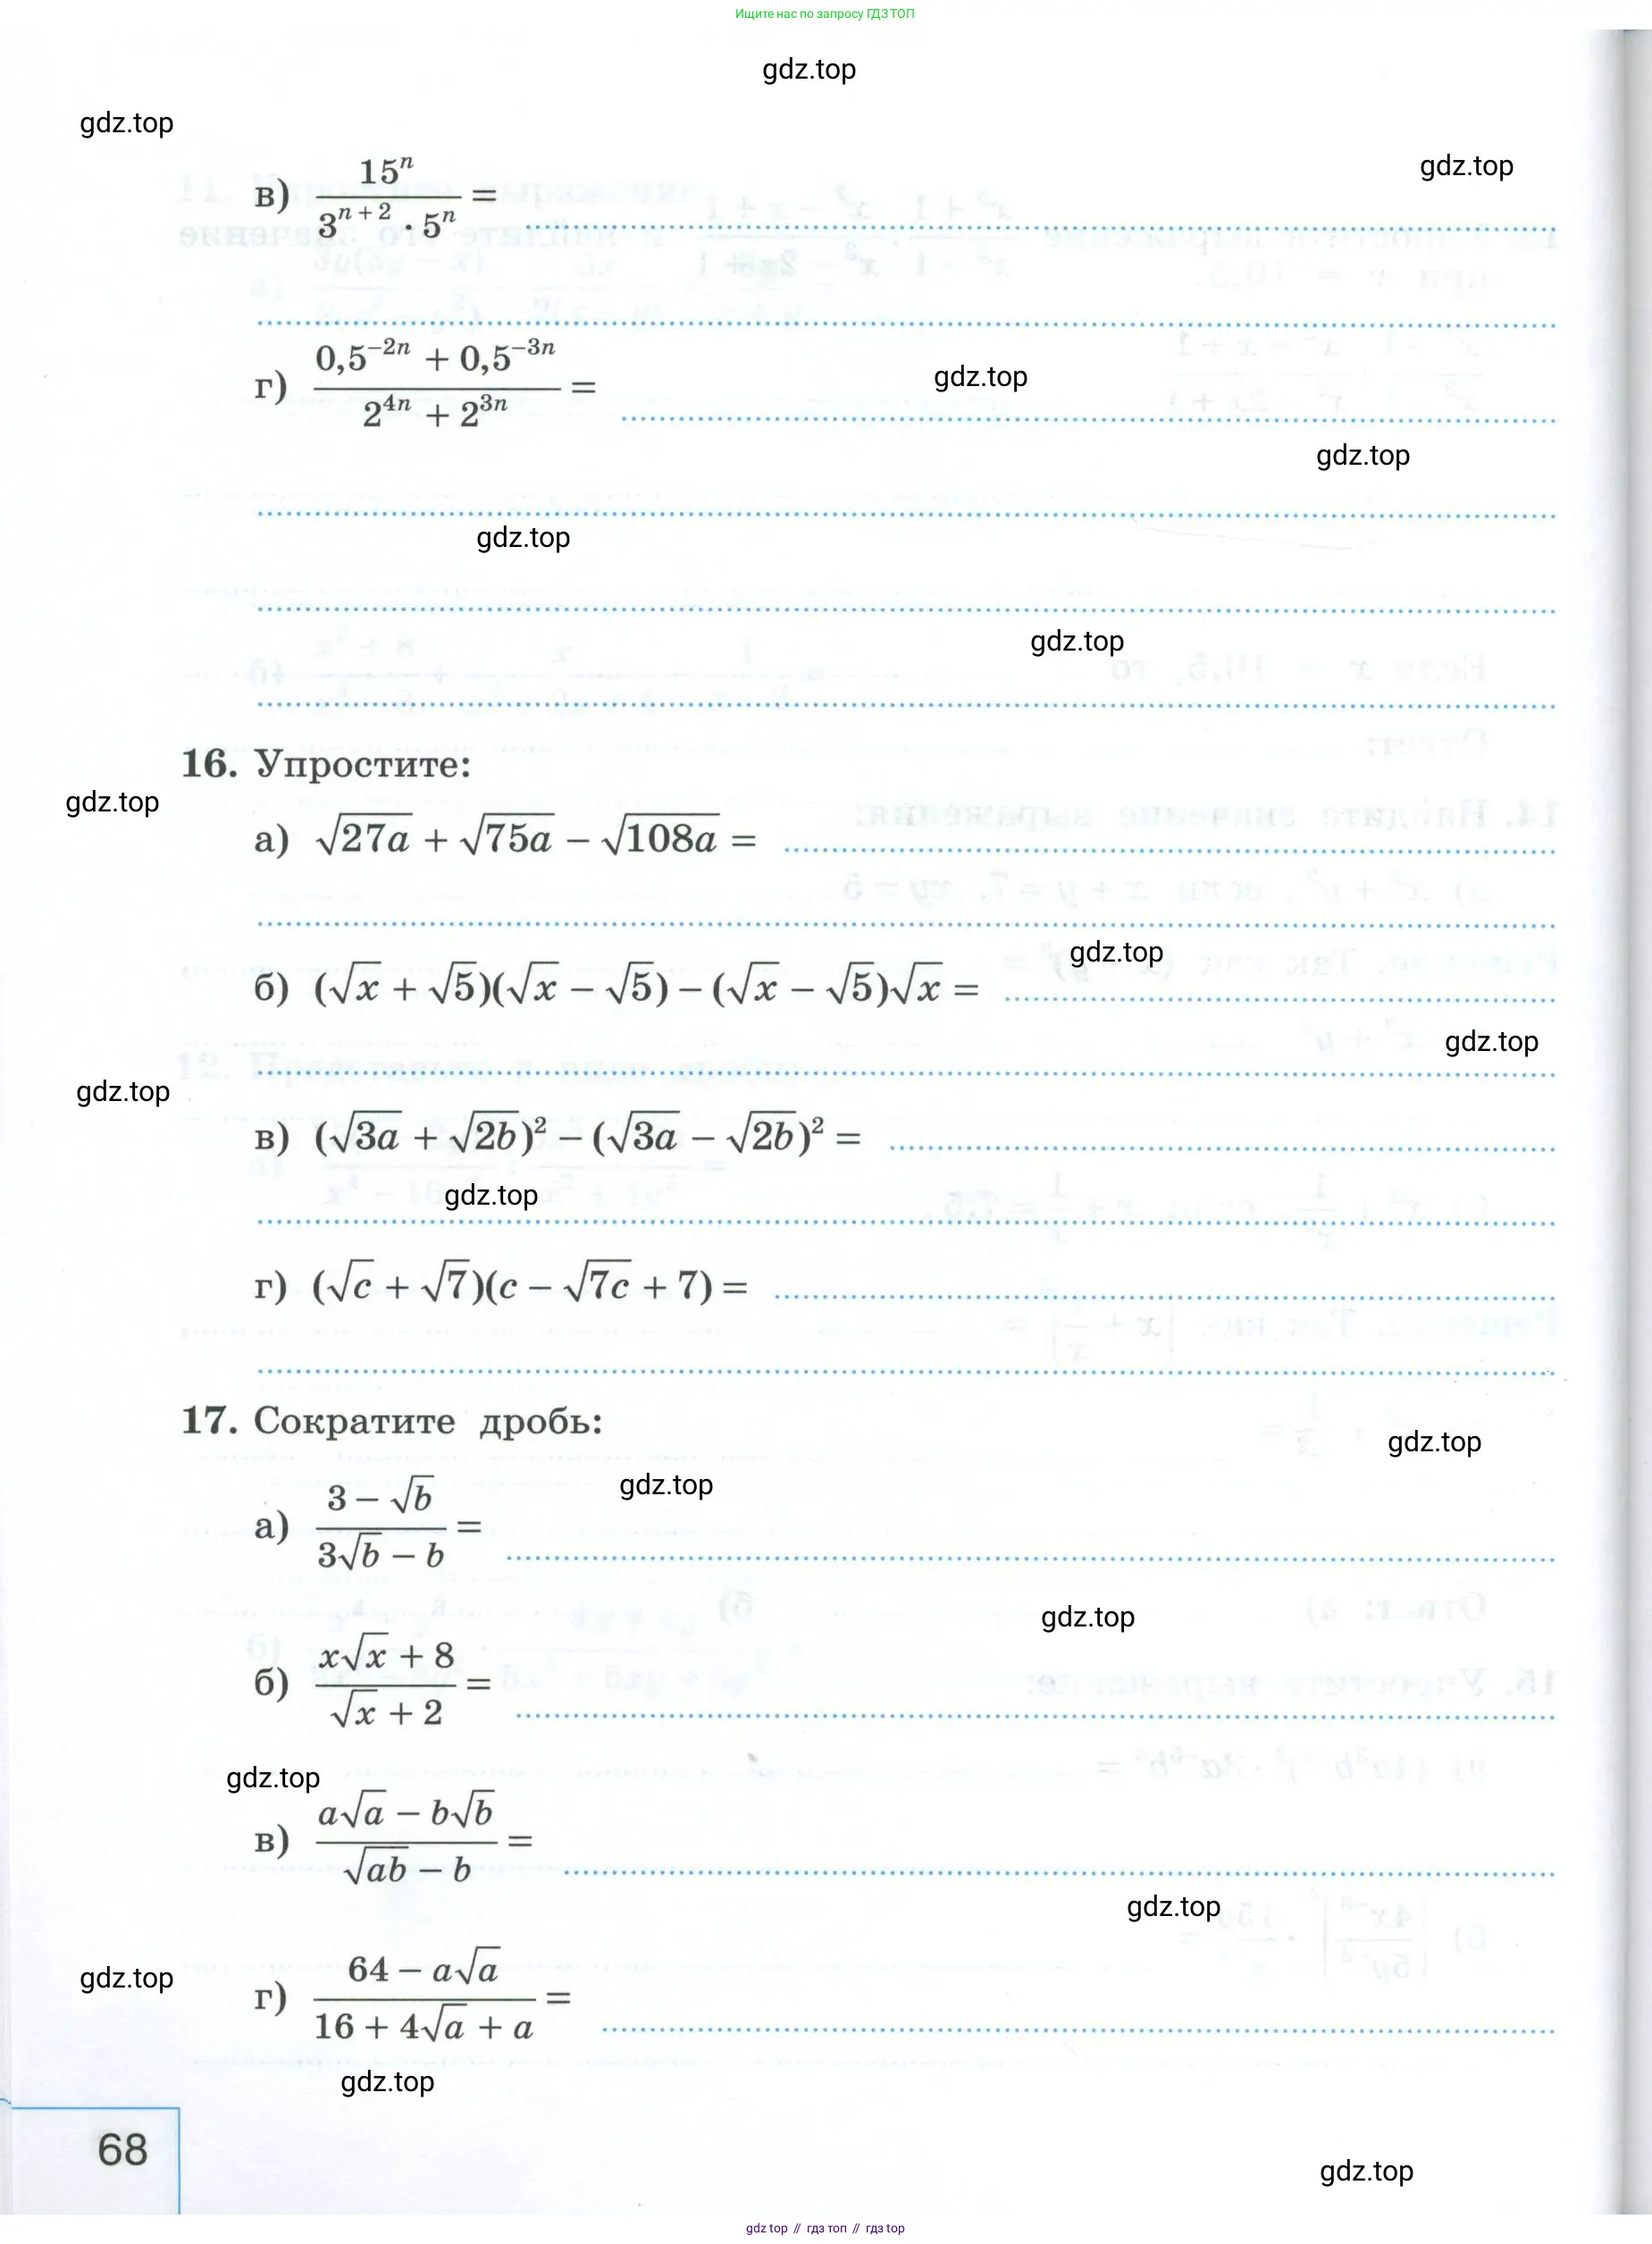 Ищите нас по запросу ГДЗ ТОП
gdz.top
gdz.top
gdz.top
в) 15^n / (3^(n + 2) · 5^n) =
gdz.top
г) (0,5^(−2n) + 0,5^(−3n)) / (2^(4n) + 2^(3n)) =
gdz.top
gdz.top
gdz.top
16. Упростите:
gdz.top
а) √(27a) + √(75a) − √(108a) =
gdz.top
б) (√x + √5)(√x − √5) − (√x − √5)√x =
gdz.top
gdz.top
в) (√(3a) + √(2b))² − (√(3a) − √(2b))² =
gdz.top
г) (√c + √7)(c − √(7c) + 7) =
17. Сократите дробь:
gdz.top
gdz.top
а) (3 − √b) / (3√b − b) =
gdz.top
б) (x√x + 8) / (√x + 2) =
gdz.top
в) (a√a − b√b) / (√(ab) − b) =
gdz.top
gdz.top
г) (64 − a√a) / (16 + 4√a + a) =
gdz.top
68
gdz.top
gdz top // гдз топ // гдз top